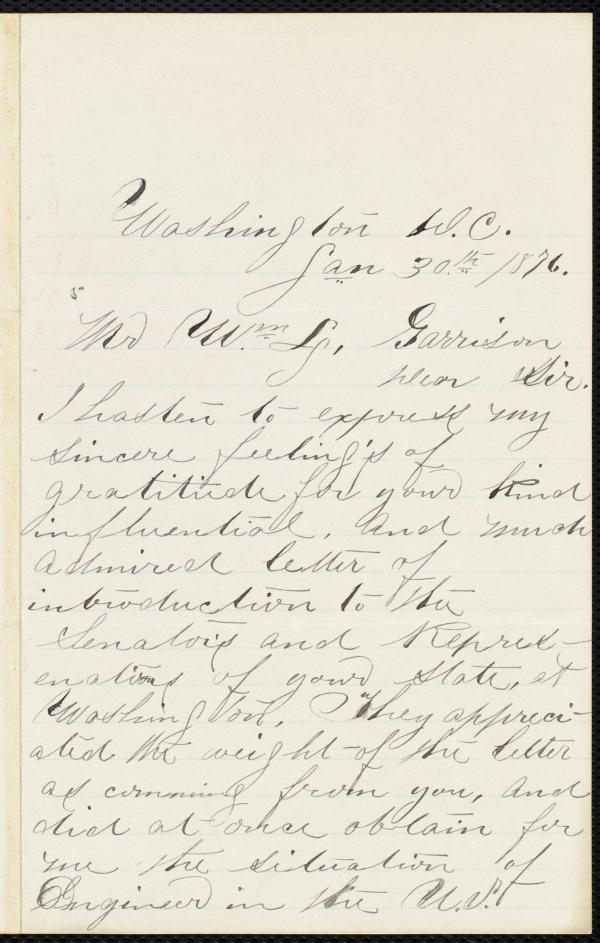 Washington D.C.
Jan 30th 1876.
Mr Wm L. Garrison
Dear Sir.
I hasten to express my
sincere feeling's of
gratitude for your kind
influential, and much
admired letter of
introduction to the
Senators and Repres-
enatives of your State, at
Washington. They appreci-
ated the weight of the letter
as comming from you, and
did at once obtain for
me the situation of
Engineer in the U.S.